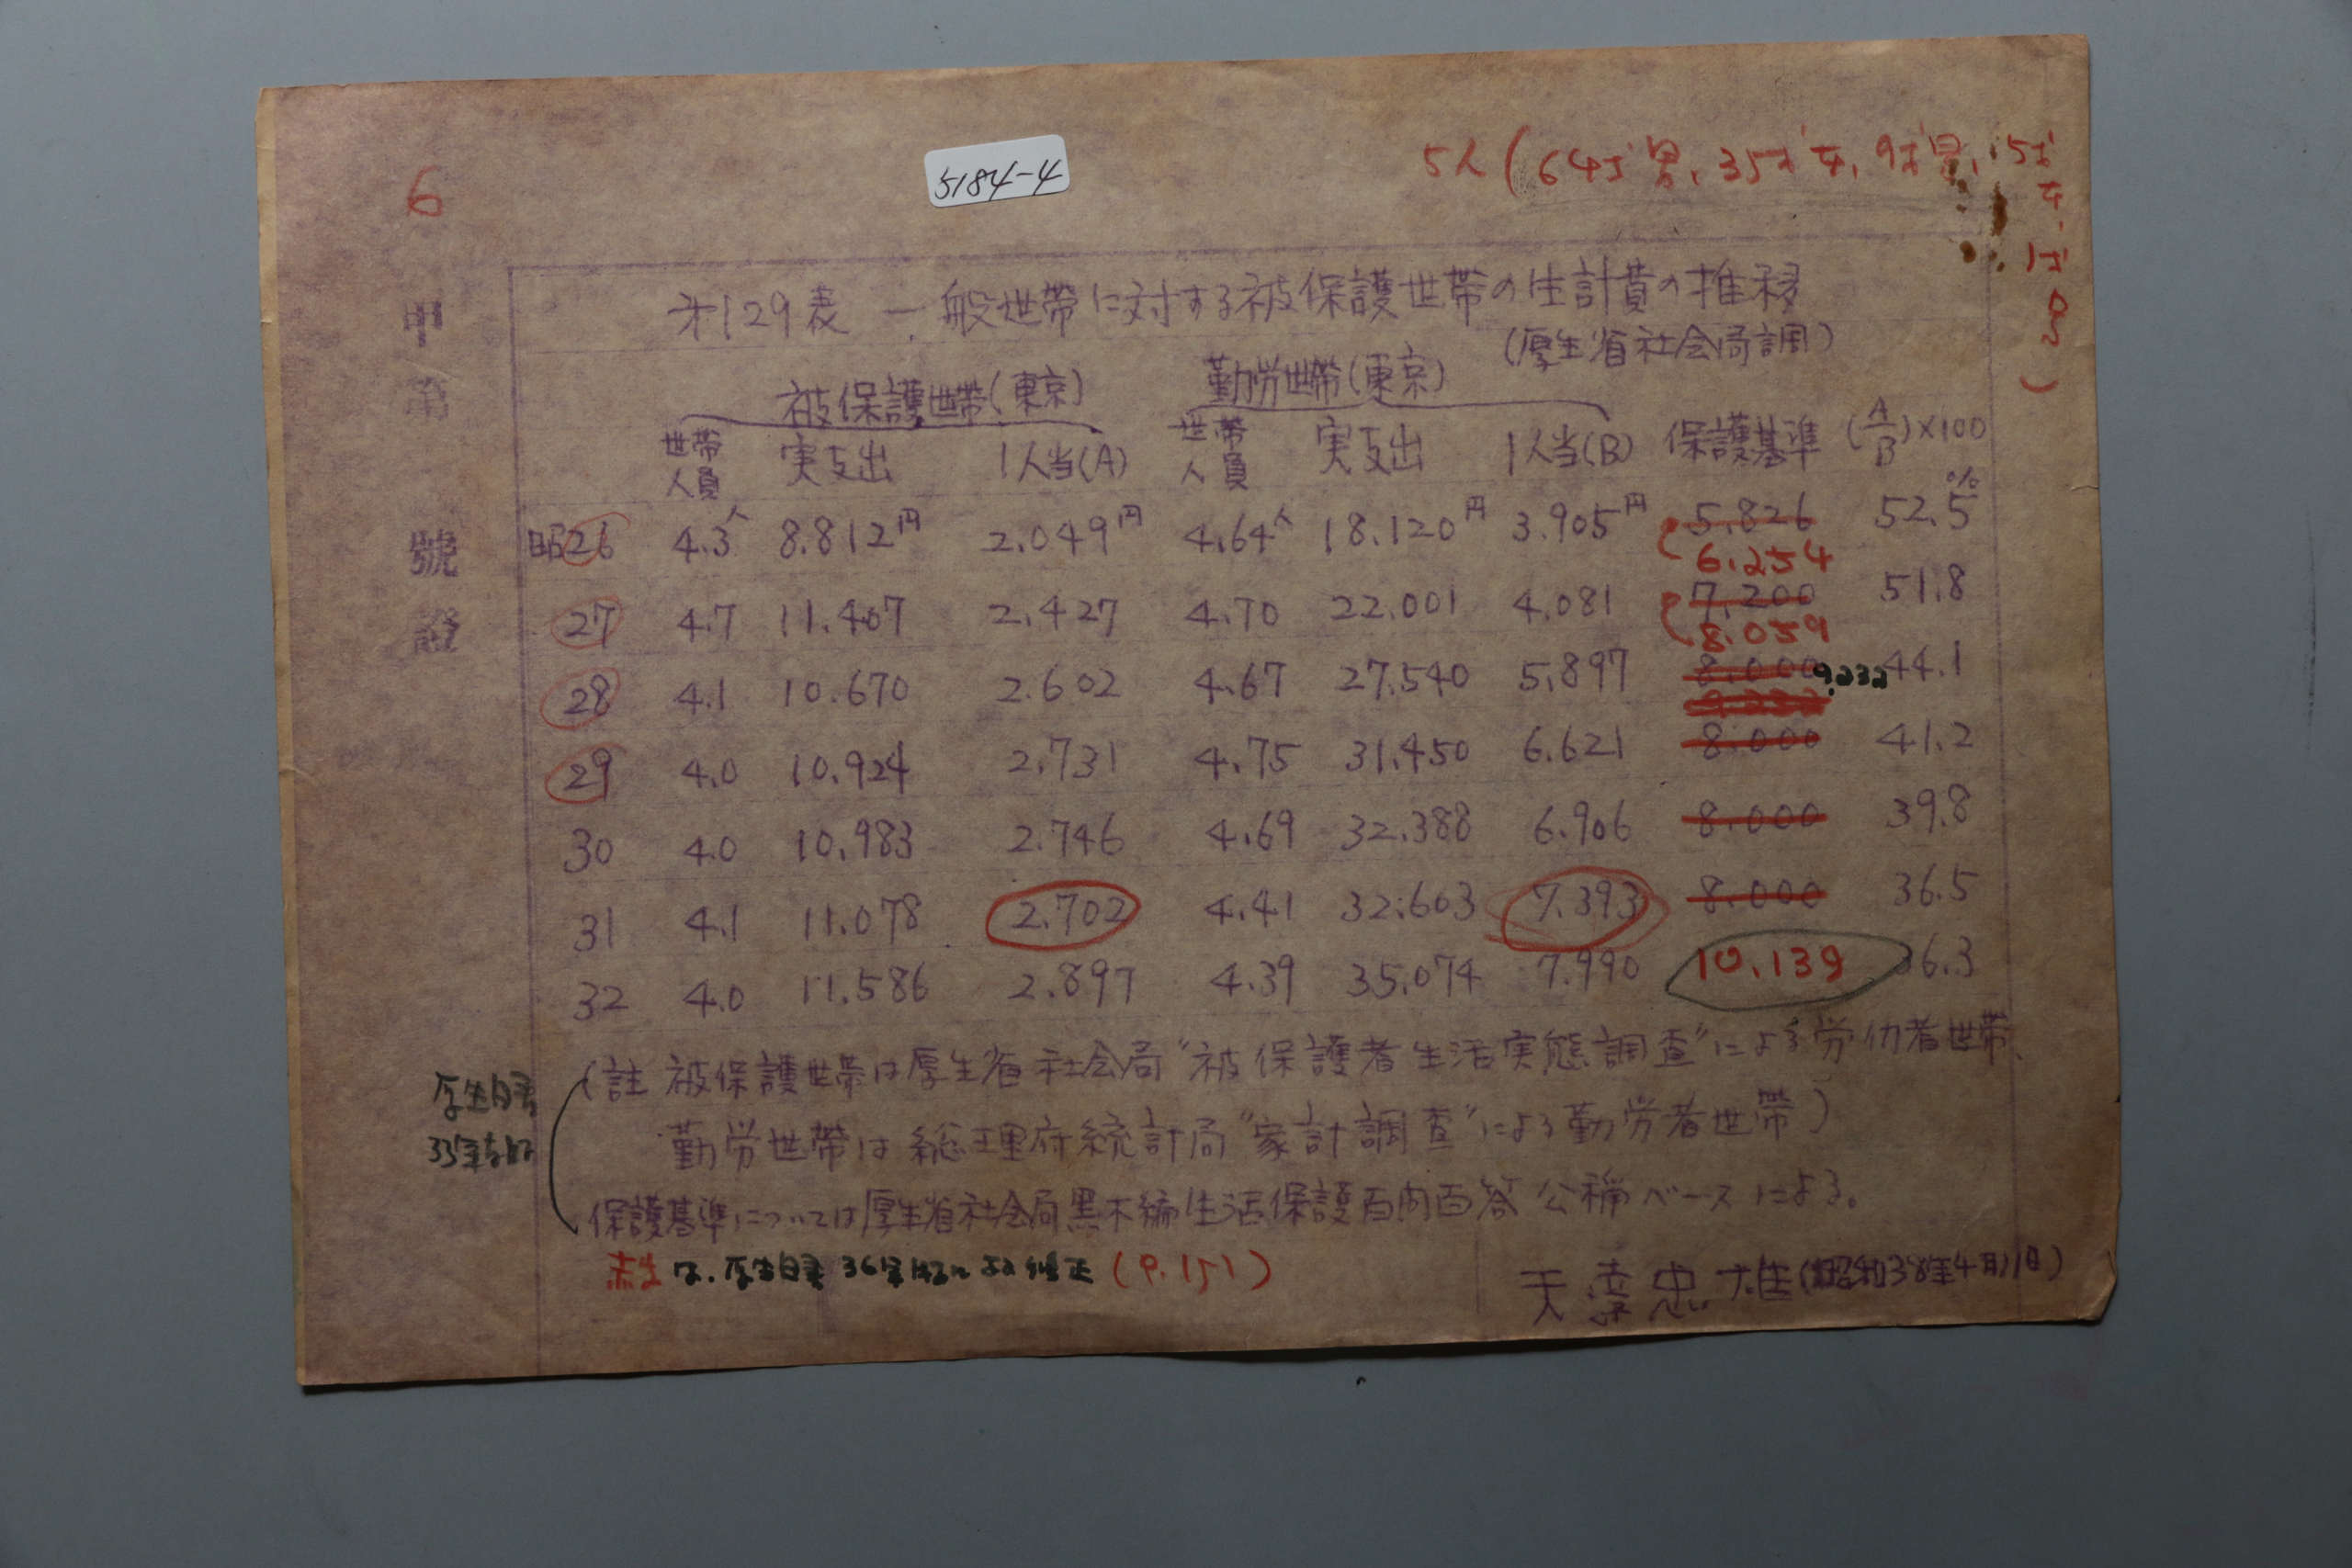 5184-4
6
5人(64才男、35才女、9才男、5才女、1才男)
甲第 號證
才129表 一般世帯に対する被保護世帯の生計費の推移
(厚生省社会局調)
被保護世帯(東京) 勤労世帯(東京)
世帯人員 実支出 1人当(A) 世帯人員 実支出 1人当(B) 保護基準 (A/B)×100
昭26 4.3人 8.812円 2.049円 4.64人 18.120円 3.905円 5.826 52.5%
6.254
27 4.7 11.407 2.427 4.70 22.001 4.081 7.200 51.8
8.059
28 4.1 10.670 2.602 4.67 27.540 5.897 8.000 9.232 44.1
9.232
29 4.0 10.924 2.731 4.75 31.450 6.621 8.000 41.2
30 4.0 10.983 2.746 4.69 32.388 6.906 8.000 39.8
31 4.1 11.078 2.702 4.41 32.603 7.393 8.000 36.5
32 4.0 11.586 2.897 4.39 35.074 7.990 10.139 36.3
(註 被保護世帯は厚生省社会局"被保護者生活実態調査"による労仂者世帯、
勤労世帯は総理府統計局"家計調査"による勤労者世帯)
保護基準については厚生省社会局黒木編生活保護百問百答 公称ベースによる。
厚生白書
33年
は、厚生白書 36年版により修正 (P.151)
天達忠雄(昭和38年4月11日)